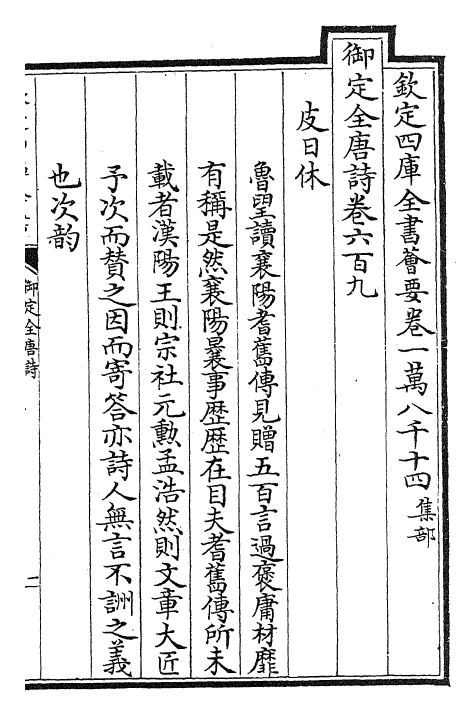 欽定四庫全書薈要卷一萬八千十四 集部
御定全唐詩卷六百九
皮日休
魯望讀襄陽耆舊傳見贈五百言過褒庸材靡
有稱是然襄陽曩事歴歴在目夫耆舊傳所未
載者漢陽王則宗社元勲孟浩然則文章大匠
予次而賛之因而寄答亦詩人無言不詶之義
也次韵
御定全唐詩